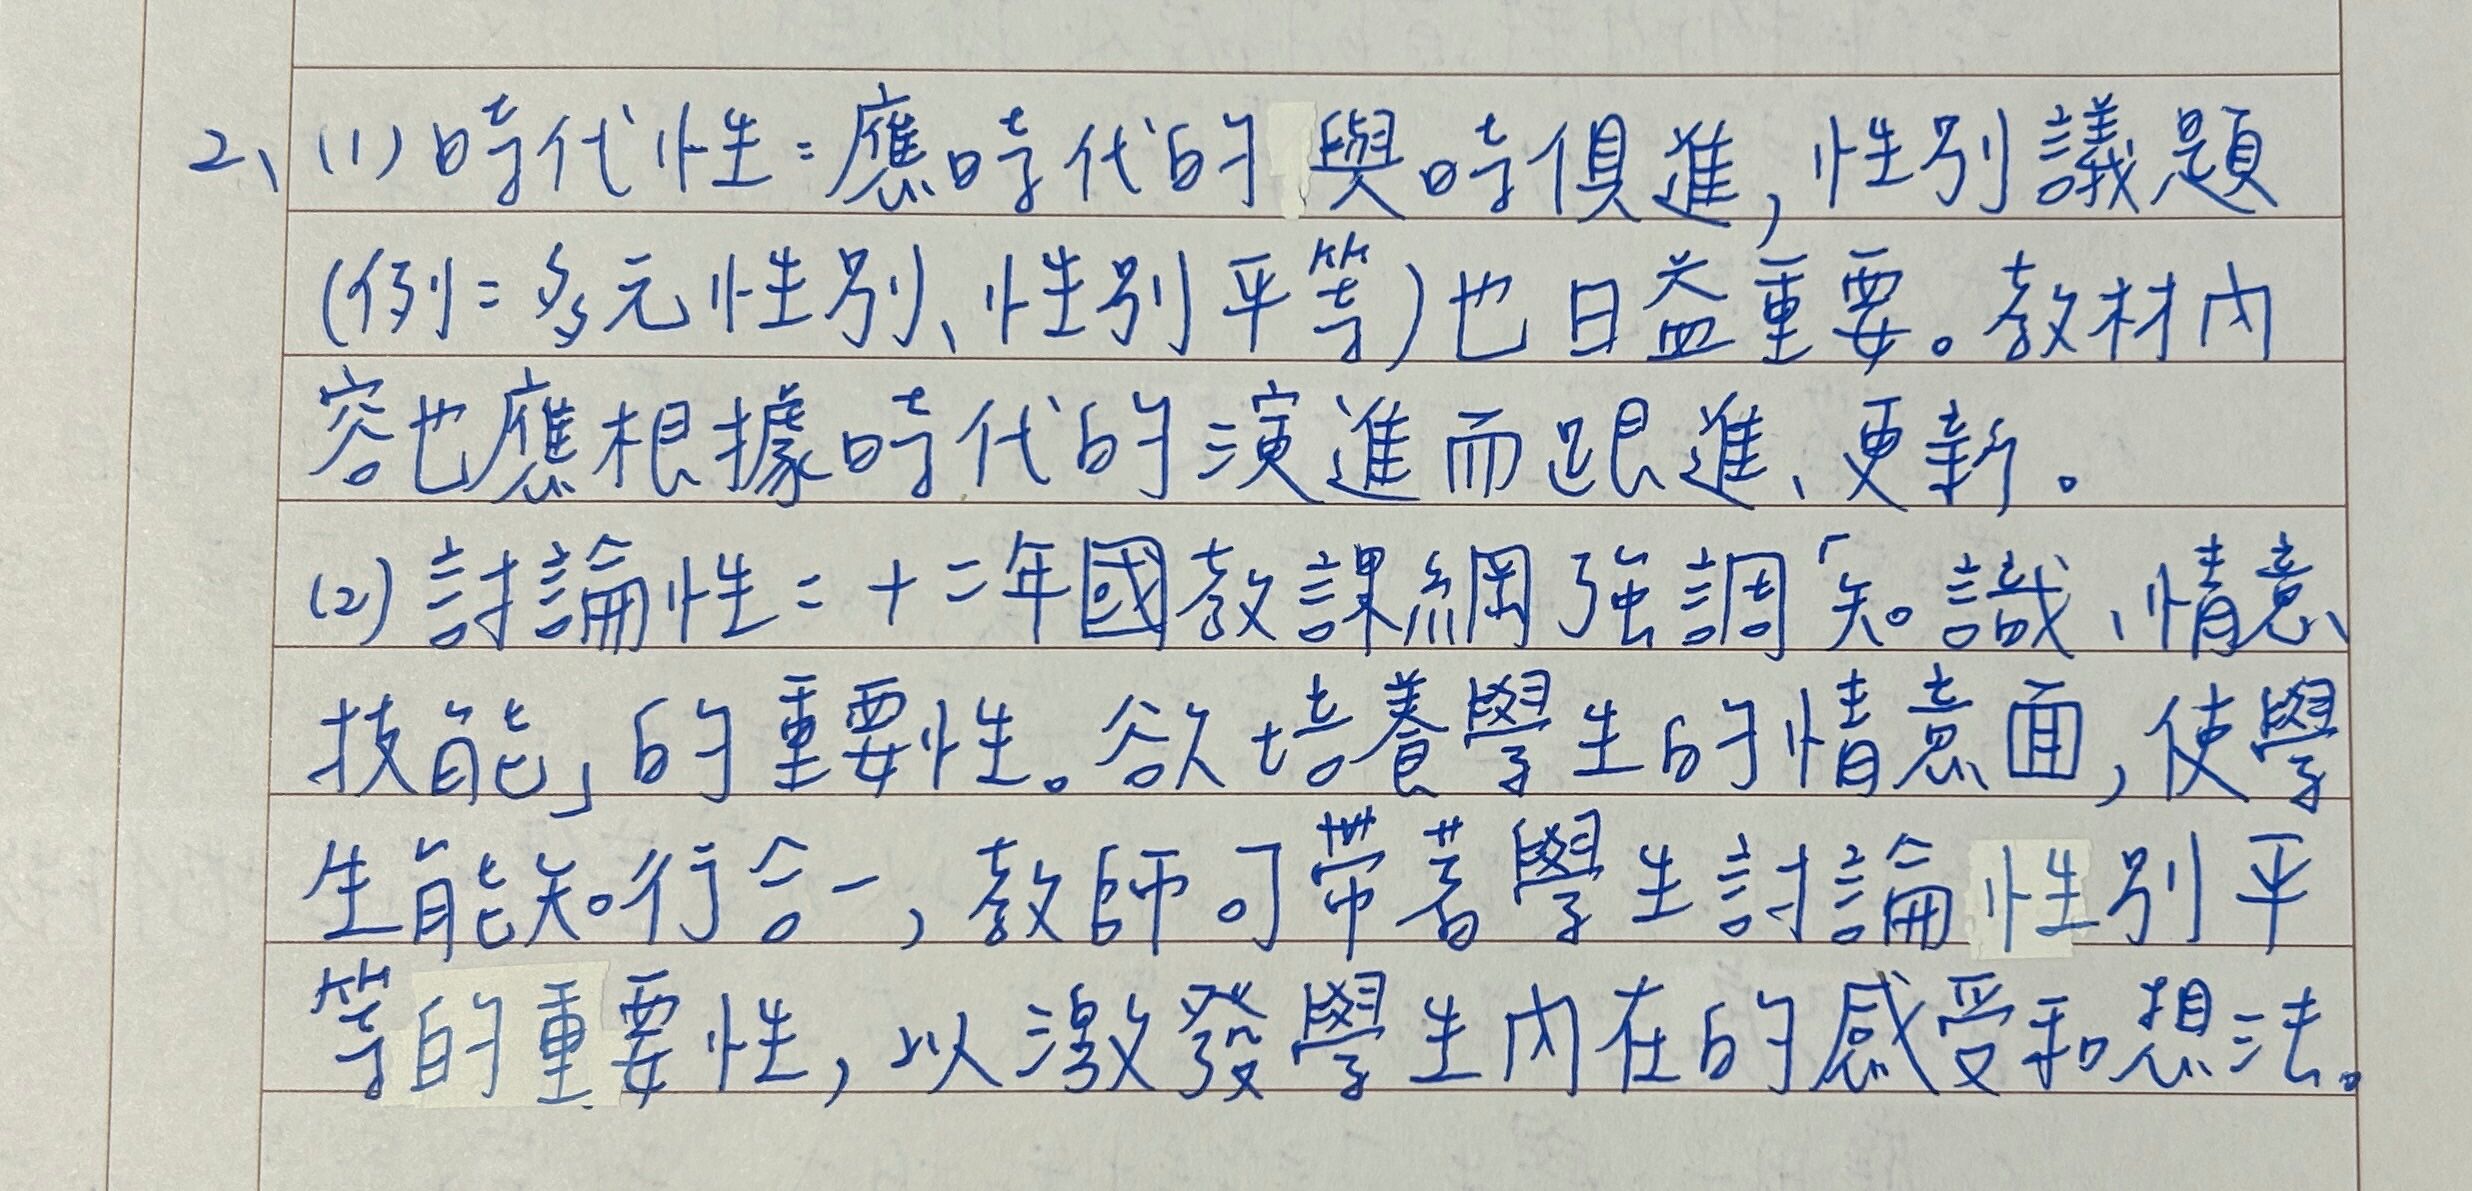 2、(1)時代性:應時代的與時俱進,性別議題
(例:多元性別、性別平等)也日益重要。教材內
容也應根據時代的演進而跟進、更新。
(2)討論性:十二年國教課綱強調「知識、情意、
技能」的重要性。欲培養學生的情意面,使學
生能知行合一,教師可帶著學生討論性別平
等的重要性,以激發學生內在的感受和想法。